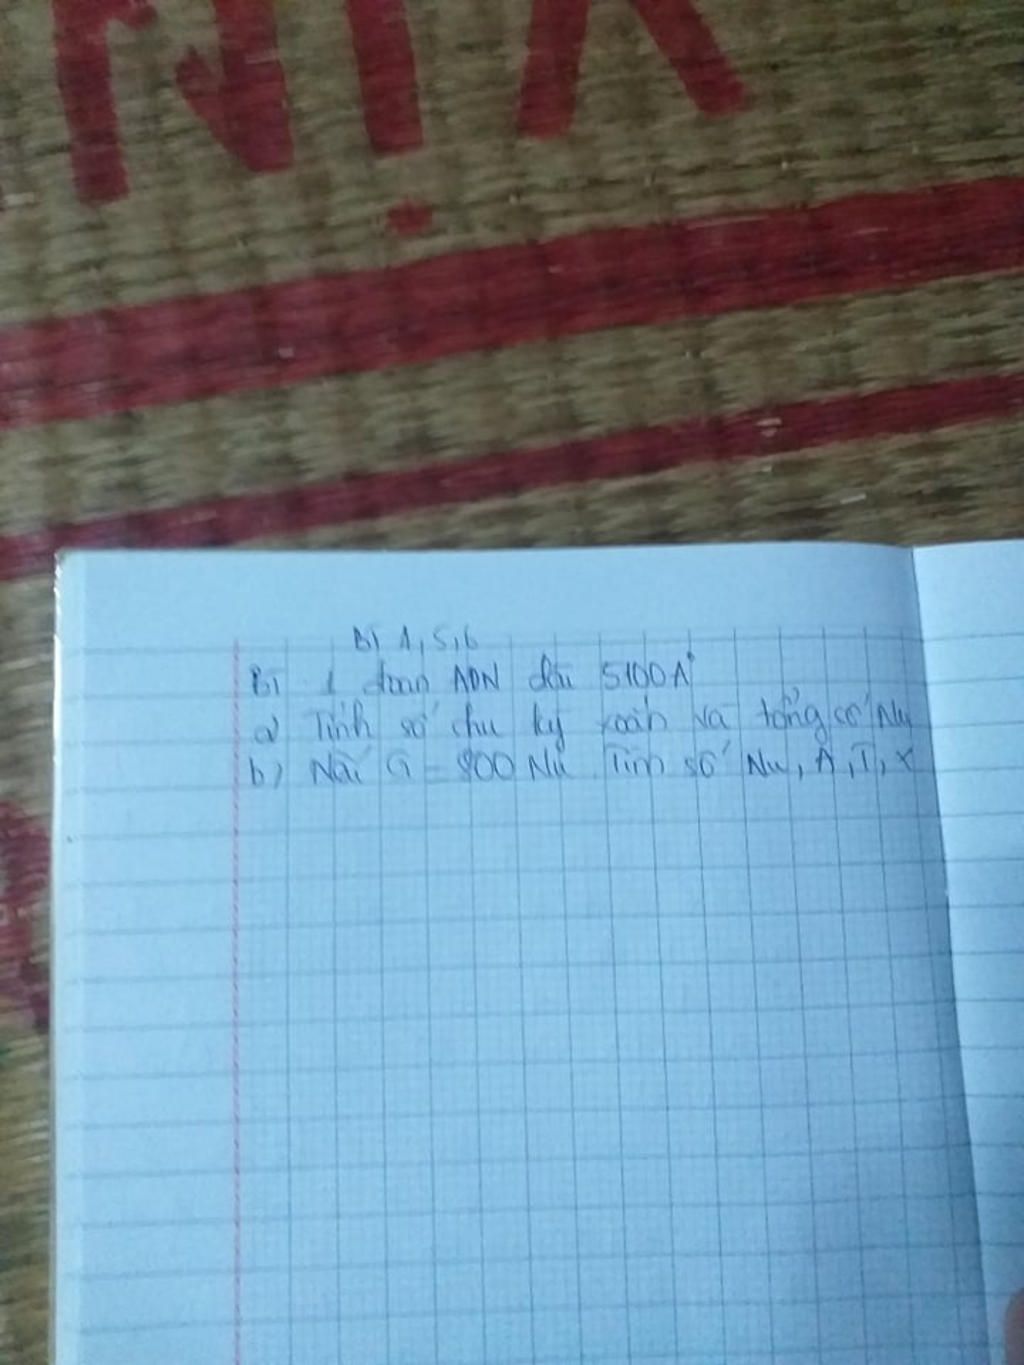 B1 1, 5, 6
B1 1 đoạn ADN dài 5100A°
a) Tính số chu kỳ xoắn và tổng số Nu
b) Nếu G = 800 Nu. Tính số Nu, A, T, X